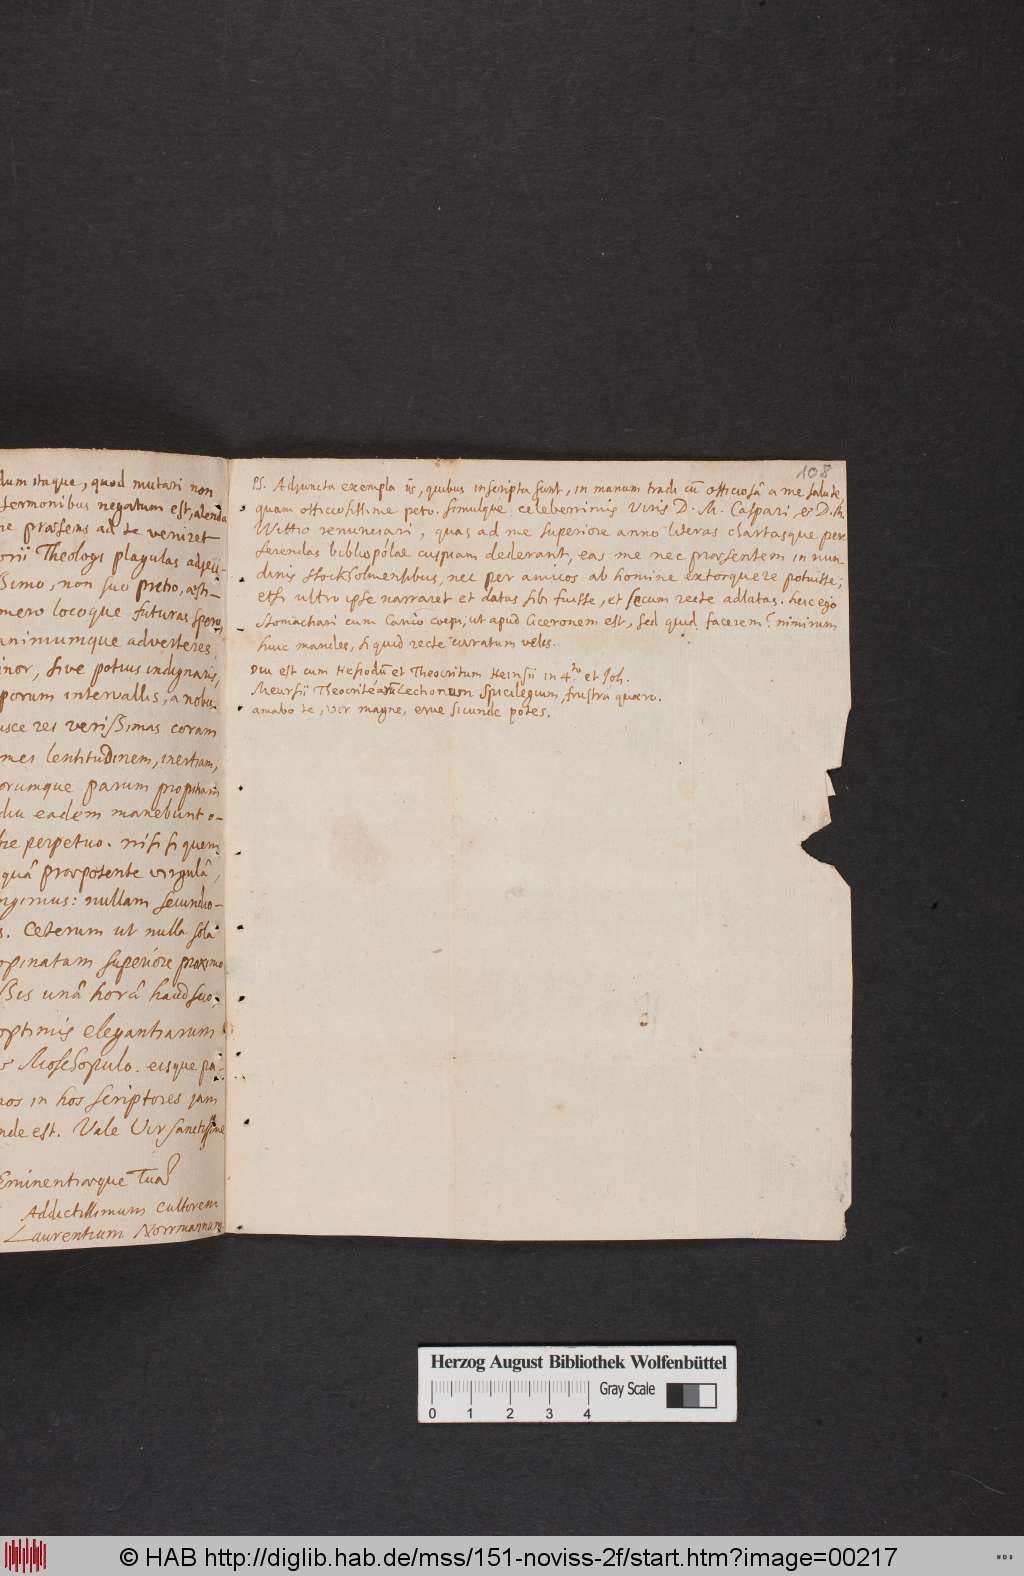 dum itaque, quod mutari non
sermonibus negatum est, alenda
ne præsens ad te veniret
orii Theologi plagulas adjeci-
ssimo, non suo pretio, æsti-
mero locoque futuras spero,
animumque adverteres,
inor, sive potius indignaris,
porum intervallis, a nobis
usce rei verissimas coram
mei lentitudinem, inertiam,
orumque parum propitiam
diu eadem manebunt o-
he perpetuo. nisi si quem
quâ præpotente virgulâ,
ngimus: nullam secundio-
s. Ceterum ut nulla sola
opinatam superiore proximo
Bis unâ horâ haud suo,
optimis elegantiarum
Moschopulo. eisque pa-
nos in hos scriptores jam
nde est. Vale Vir sanctissime
Eminentiæque Tuæ
Addictissimum cultorem
Laurentium Norrmannum
108
PS. Adjuncta exempla iis, quibus inscripta sunt, in manum tradi cū officiosâ a me salute,
quam officiosissime peto. simulque celeberrimis Viris D. M. Caspari & D. M.
Wittio renunciari, quas ad me superiore anno literas chartasque per-
ferendas bibliopolae cuipiam dederant, eas me nec præsentem in nun-
dinis Stockholmensibus, nec per amicos ab homine extorquere potuisse;
etsi ultro ipse narraret et datas sibi fuisse, et secum recte adlatas. heic ego
stomachari cum Canio coepi, ut apud Ciceronem est, sed quid facerem? nimirum
huic mandes, si quid recte curatum velis.
Diu est cum Hesiodū et Theocritum Heinsii in 4.to et Joh.
Meursii Theocritearū Lectionum Spicilegium, frustra quæro.
amabo te, vir magne, erue sicunde potes.
Herzog August Bibliothek Wolfenbüttel
Gray Scale
0 1 2 3 4
© HAB http://diglib.hab.de/mss/151-noviss-2f/start.htm?image=00217